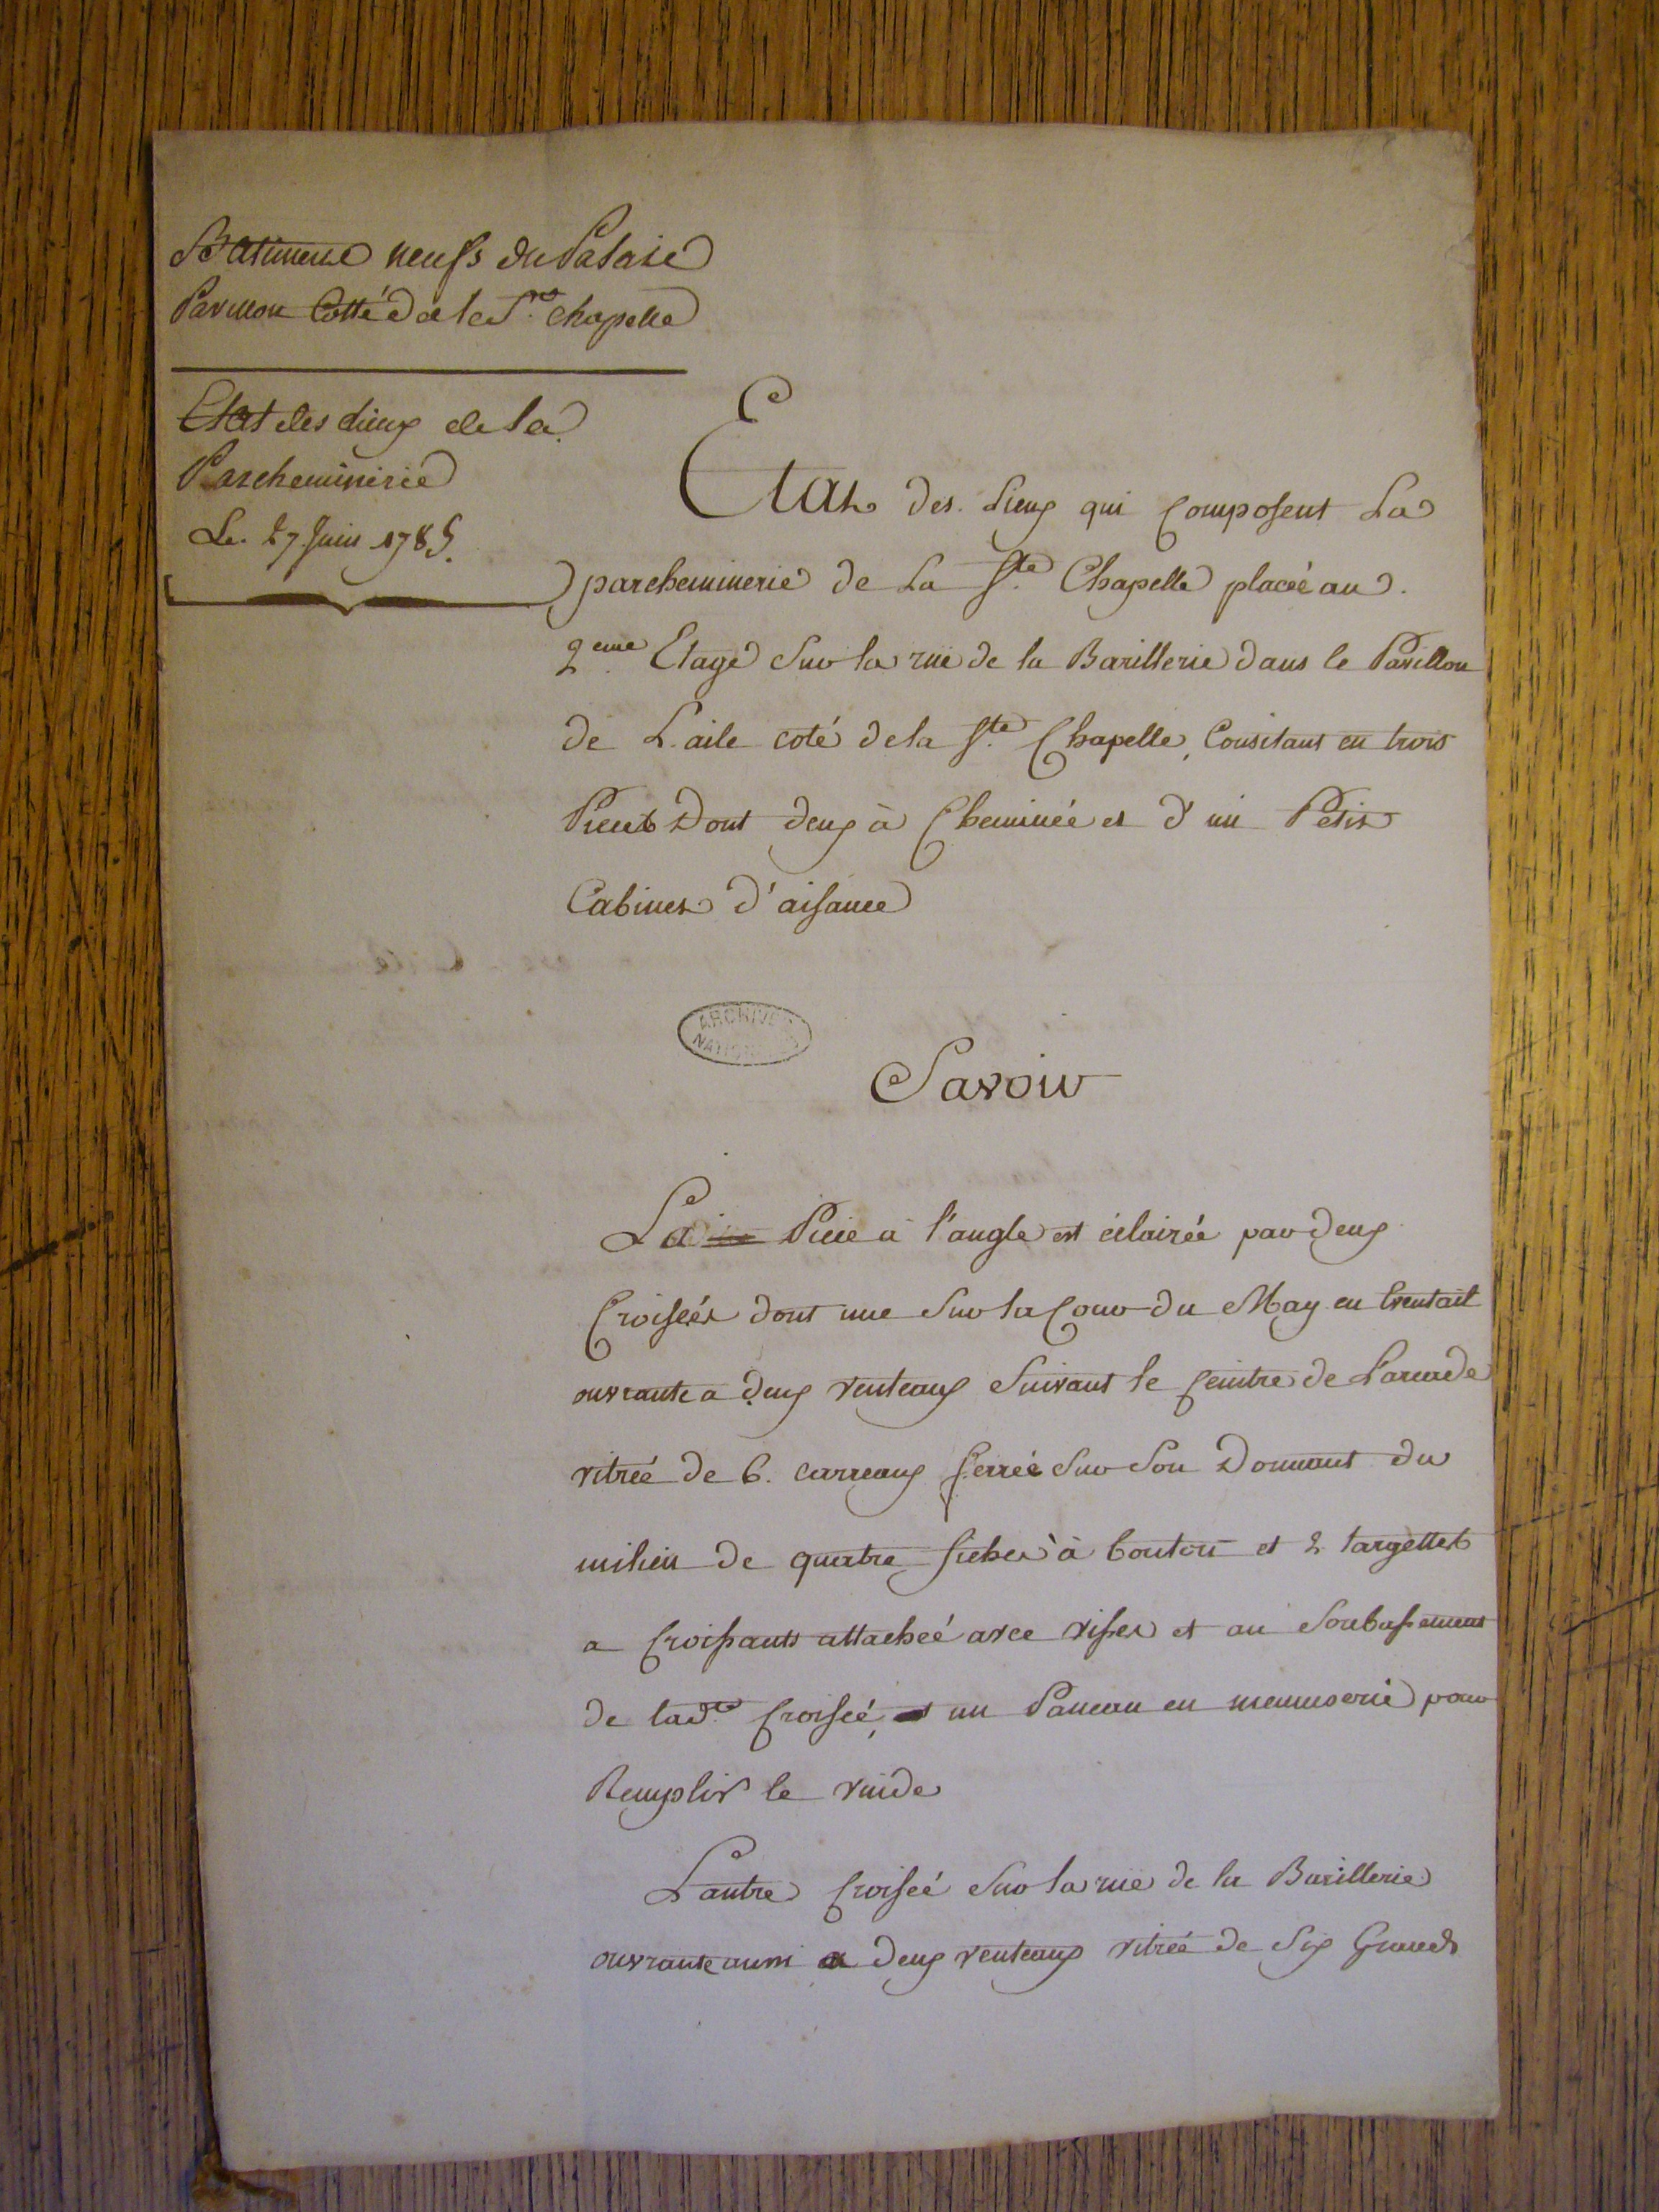 Batiments neufs du Palais
Pavillon Cotté de la Ste. Chapelle
Etat des Lieux de la
Parcheminerie
Le. 27 Juin 1785.
Etat des Lieux qui Composent La
parcheminerie de La Ste. Chapelle placée au
2eme. Etage Sur la rüe de la Barillerie dans le Pavillon
de L'aile coté de la Ste. Chapelle, Consistant en trois
Pieces Dont deux à Cheminée et d'un Petit
Cabinet d'aisance
ARCHIVES
NATIONALES
Savoir
La Piece à l'angle est éclairée par deux
Croisées dont une Sur la Cour du May en
ouvrante a deux venteaux Suivant le Ceintre de L'arcade
vitrée de 6. carreaux ferrée Sur Son Dormant du
milieu de quatre fiches à bouton et 2 targettes
a Croissants attachée avec visses et au Soubassement
de lade. Croisée, un Paneau en menuiserie pour
Remplir le vuide
L'autre Croisée Sur la rüe de la Barillerie
ouvrante aussi a deux venteaux vitrée de Six Grands